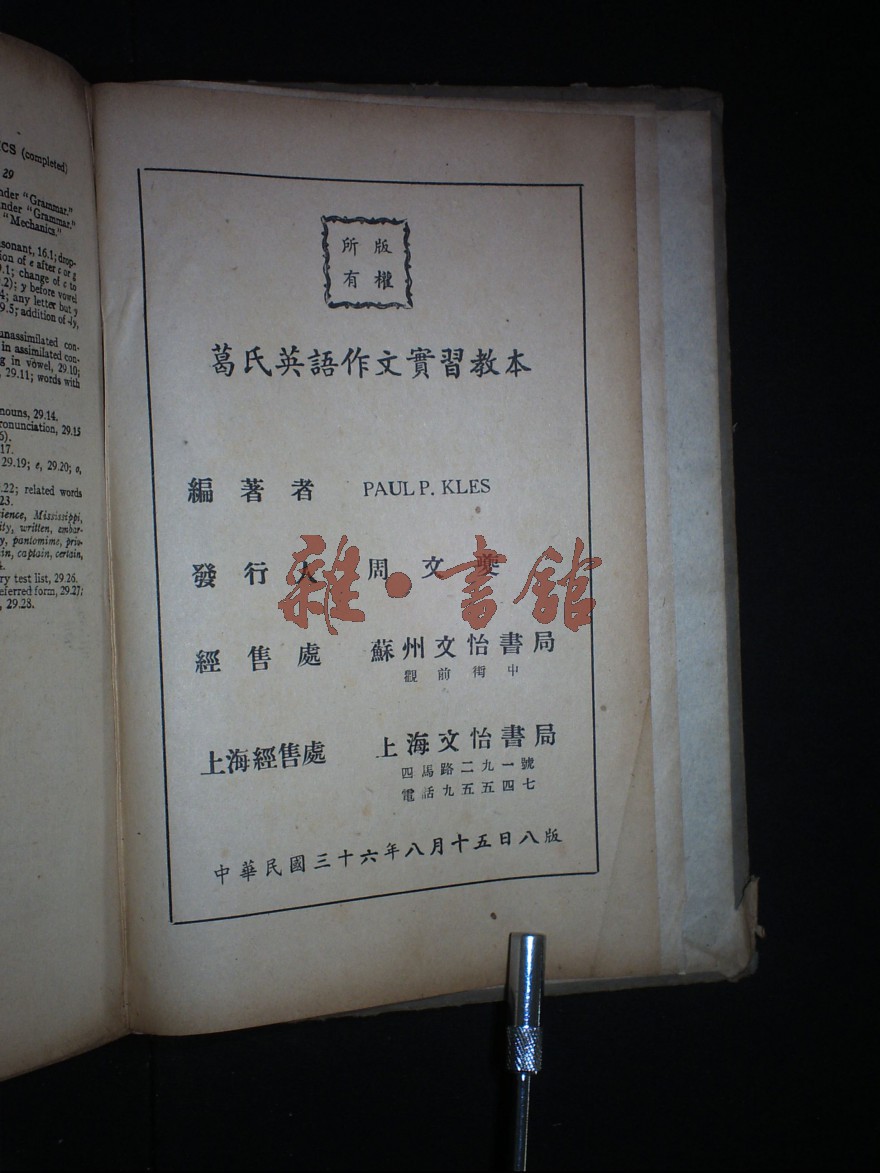 CS (completed)
29
nder "Grammar."
nder "Grammar."
"Mechanics."
sonant, 16.1; drop-
ion of e after c or g
9.1; change of c to
.2); y before vowel
4; any letter but y
9.5; addition of -ly,
unassimilated con-
in assimilated con-
g in vowel, 29.10;
, 29.11; words with
nouns, 29.14.
ronunciation, 29.15
6).
17.
29.19; e, 29.20; a,
.22; related words
23.
ience, Mississippi,
ity, written, embar-
y, pantomime, priv-
in, captain, certain,
4.
ry test list, 29.26.
eferred form, 29.27;
, 29.28.
版權所有
葛氏英語作文實習教本
編著者 PAUL P. KLES
發行人 周文
經售處 蘇州文怡書局
觀前街中
上海經售處 上海文怡書局
四馬路二九一號
電話九五五四七
中華民國三十六年八月十五日八版
雜·書館